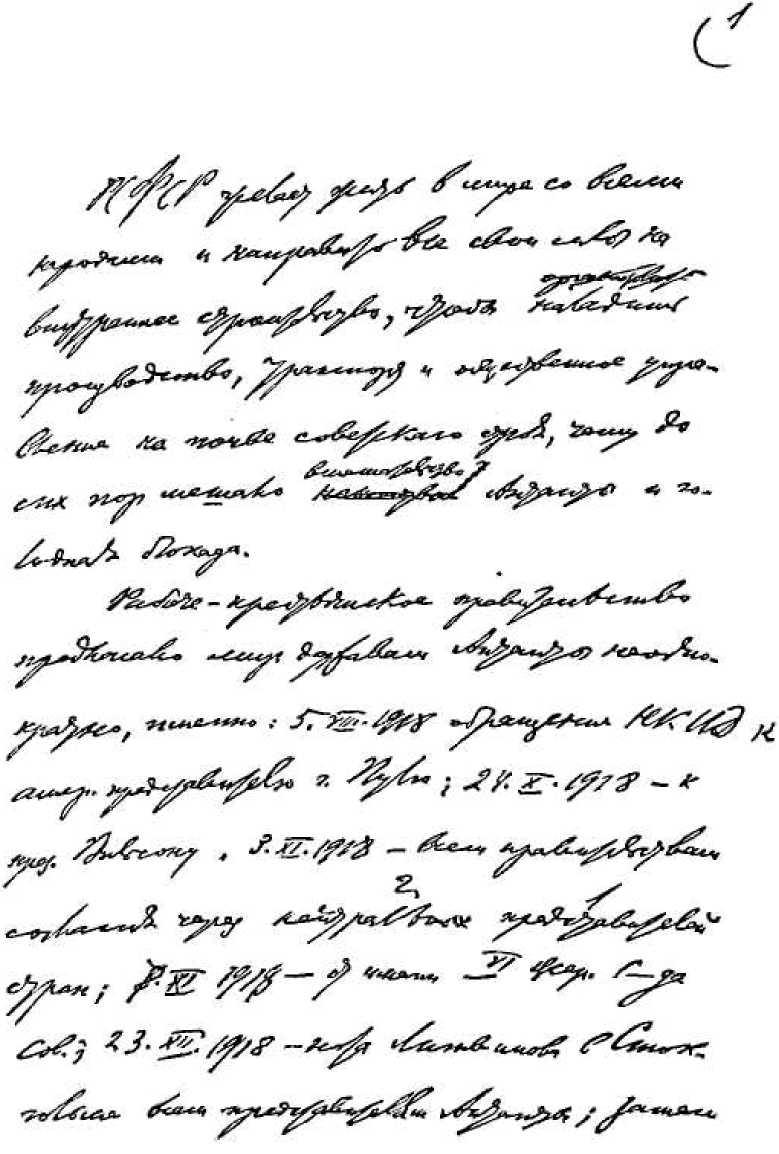 1
РСФСР желает жить в мире со всеми
народами и направить все свои силы на
внутреннее строительство, чтобы наладить
производство, транспорт и общественное управ-
ление на почве советского строя, чему до
сих пор мешало вмешательство Антанты и го-
лодная блокада.
Рабоче-крестьянское правительство
предлагало мир державам Антанты неодно-
кратно, именно: 5.VIII.1918 обращение НКИД к
амер. представителю г. Пулю; 24.X.1918 – к
през. Вильсону, 3.XI.1918 – всем правительствам
согласия через нейтральных 2 представителей 1
стран; 7.XI 1918 – от имени VI Всер. С–да
сов.; 23.XII.1918 – нота Литвинова в Сток-
гольме всем представителям Антанты; затем